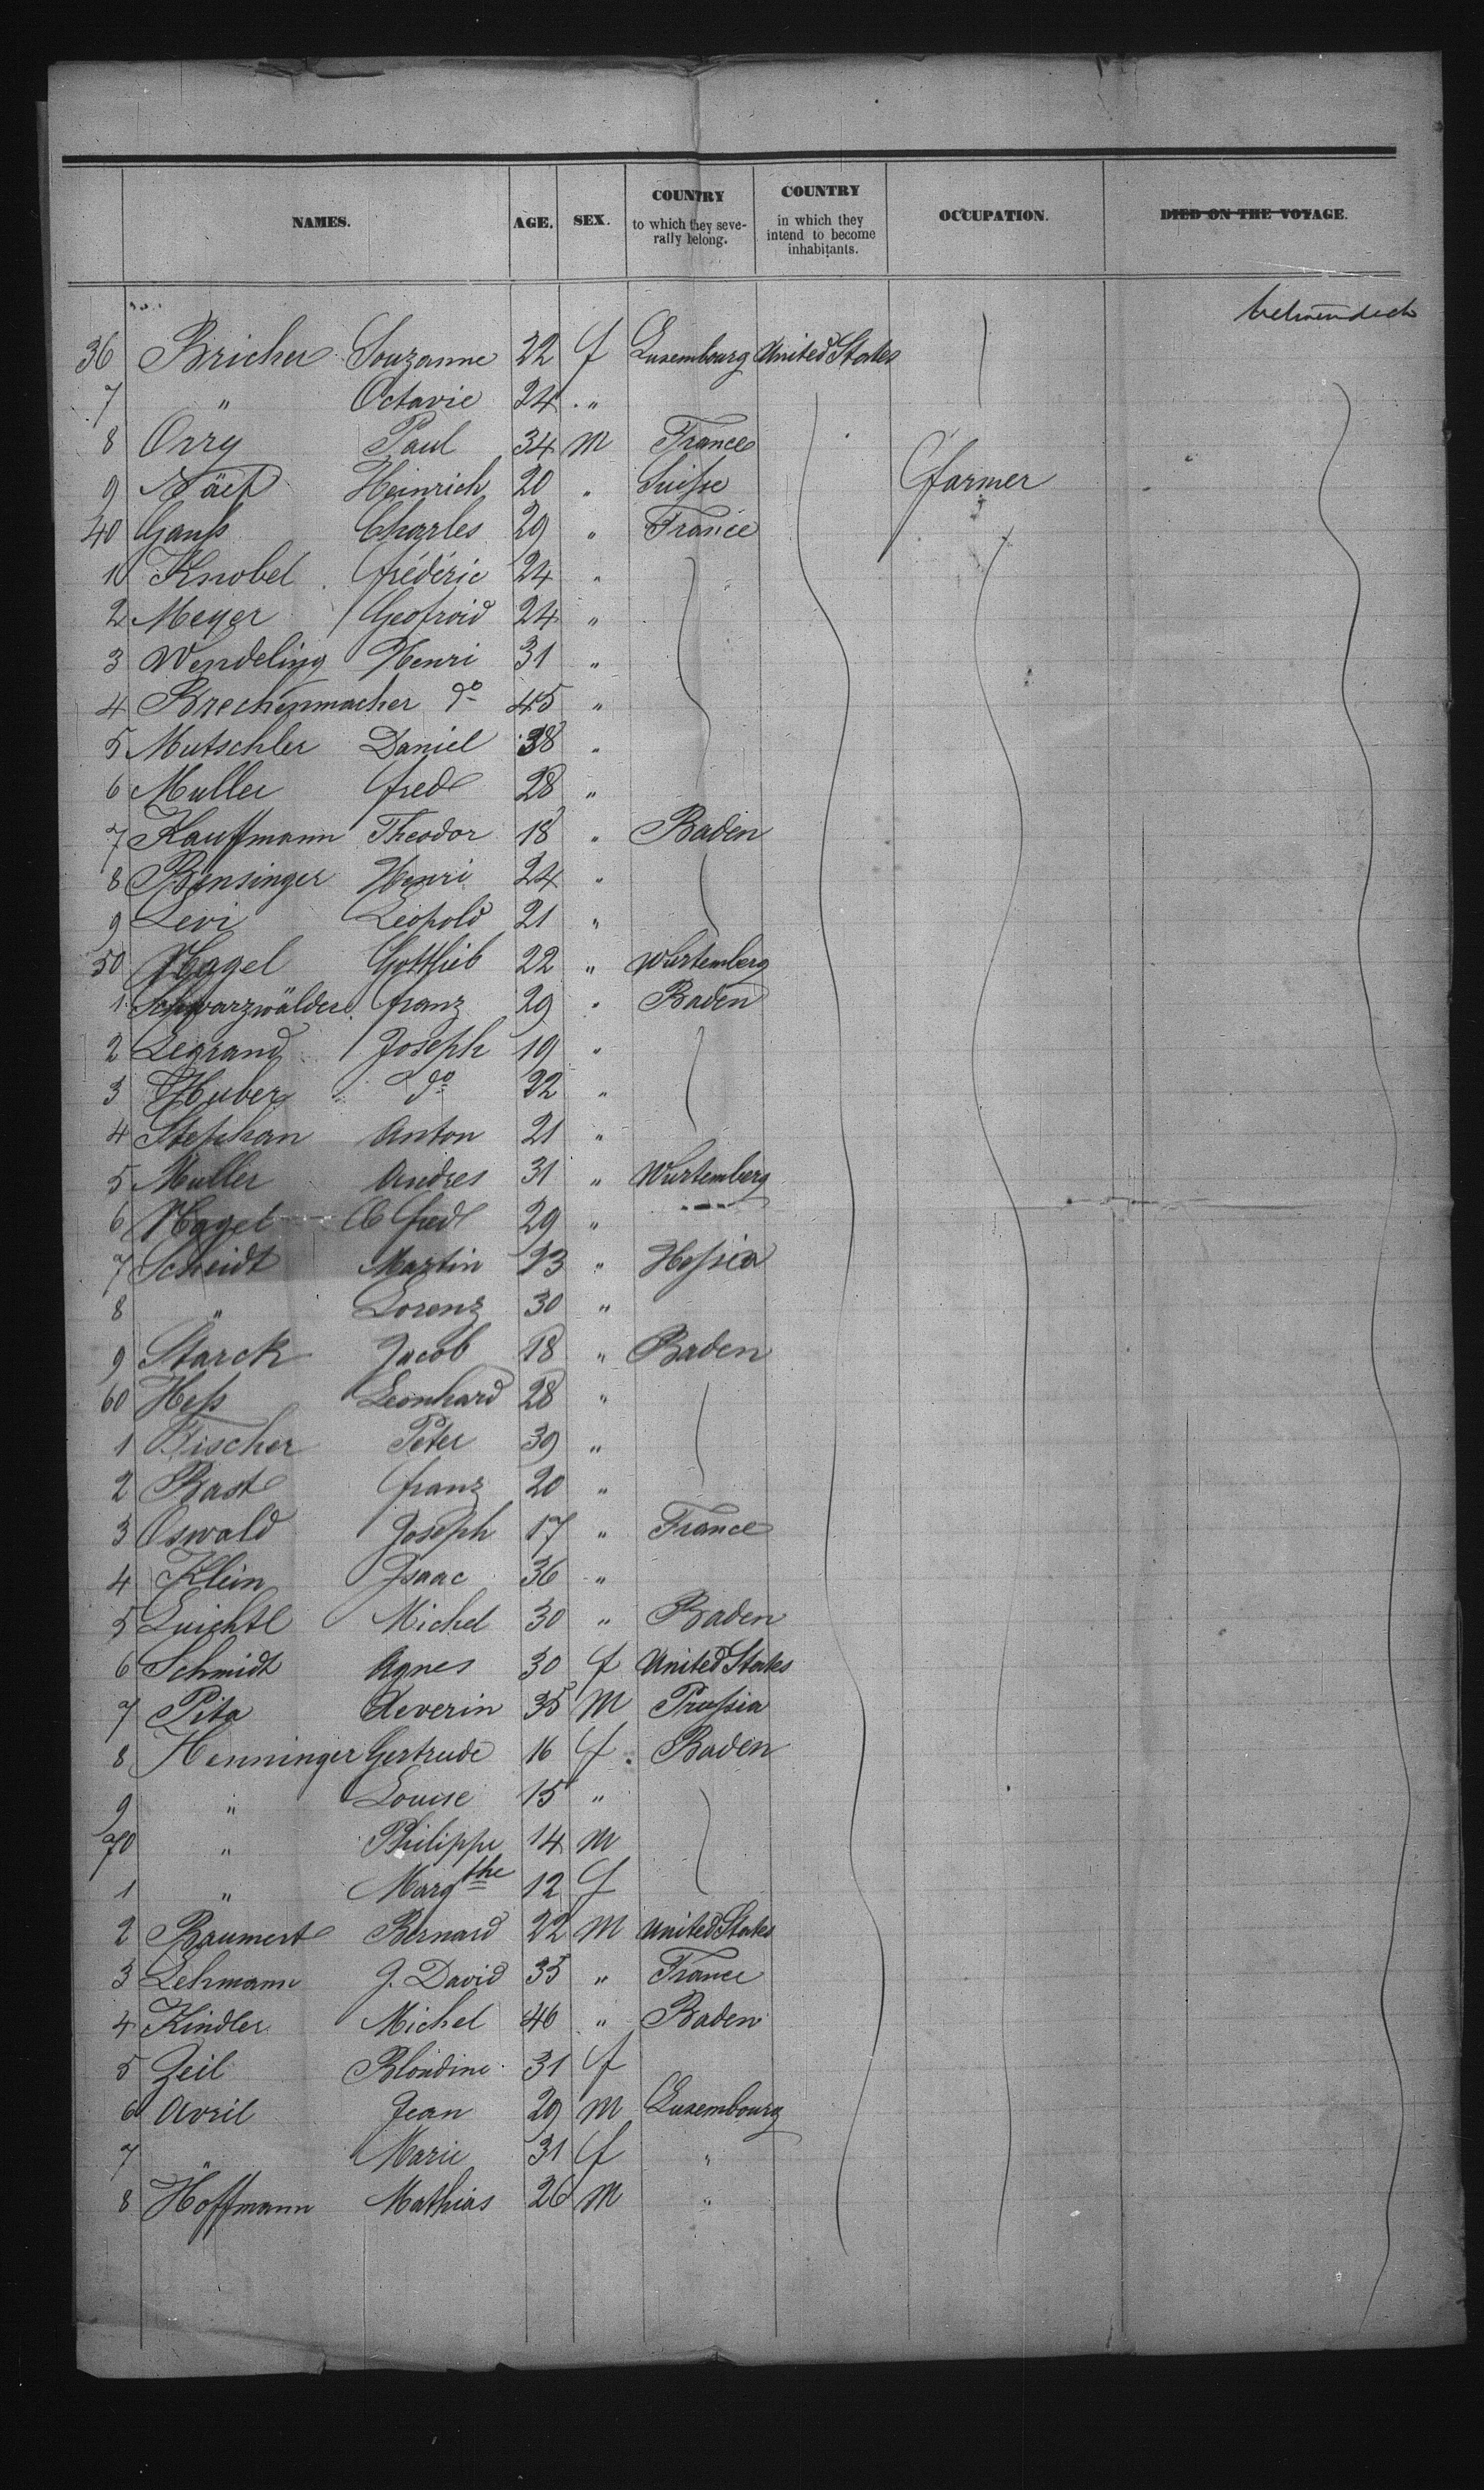 NAMES. AGE. SEX. COUNTRY to which they seve- rally belong. COUNTRY in which they intend to become inhabitants. OCCUPATION. DIED ON THE VOYAGE.
36 Bricher Souzanne 22 f Luxembourg United States
7 " Octavie 24 "
8 Orry Paul 34 M France
9 Näef Heinrich 20 " Suisse farmer
40 Gauss Charles 29 " France
1 Knobel frédéric 24 "
2 Meyer Geofroid 24 "
3 Wendeling Henri 31 "
4 Brechenmacher do 45 "
5 Mutschler Daniel 38 "
6 Muller fred 28 "
7 Kauffmann Theodor 18 " Baden
8 Bensinger Henri 24 "
9 Levi Leopold 21 "
50 Nagel Gottlieb 22 " Wurtemberg
1 Schwarzwälder franz 29 " Baden
2 Legrand Joseph 19 "
3 Huber do 22 "
4 Stephan Anton 21 "
5 Muller Andres 31 " Wurtemberg
6 Nagel fred 29 "
7 Scheidt Martin 23 " Hessia
8 " Lorenz 30 "
9 Starck Jacob 18 " Baden
60 Hess Leonhard 28 "
1 Fischer Peter 39 "
2 Bast franz 20 "
3 Oswald Joseph 17 " France
4 Klein Isaac 36 "
5 Luichtl Michel 30 " Baden
6 Schmidt Agnes 30 f United States
7 Pita Xeverin 35 M Prussia
8 Henninger Gertrude 16 f. Baden
9 " Louise 15 "
70 " Philippe 14 M
1 " Margthe 12 f
2 Baumert Bernard 22 M United States
3 Lehmann J. David 35 " France
4 Kindler Michel 46 " Baden
5 Zeil Blondine 31 f
6 Avril Jean 29 M Luxembourg
7 " Marie 31 f "
8 Hoffmann Mathias 26 M "